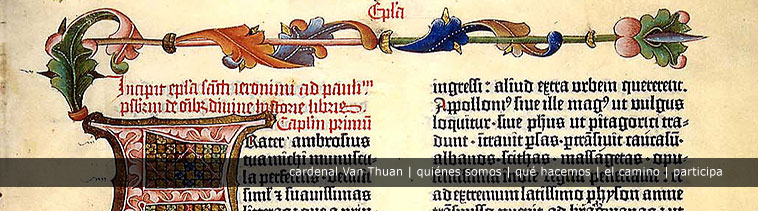 Epl'a
Incipit epl'a sancti ieronimi ad paulinum
presbiterum de omnibus divine historie libris.
Capl'm primum
Frater ambrosius
tua michi munuscula
la perferens· detulit
simul et suavissimas
ingressi: aliud extra urbem quererent.
Apolloni⁹ sive ille mag⁹ ut vulgus
loquitur· sive phus ut pitagorici tra-
dunt· itravit psas· ptrāsivit caucasū·
albanos· scithas· massagetas· opu-
ad extremum latissimo physon amne
cardenal Van Thuan | quiénes somos | qué hacemos | el camino | participa